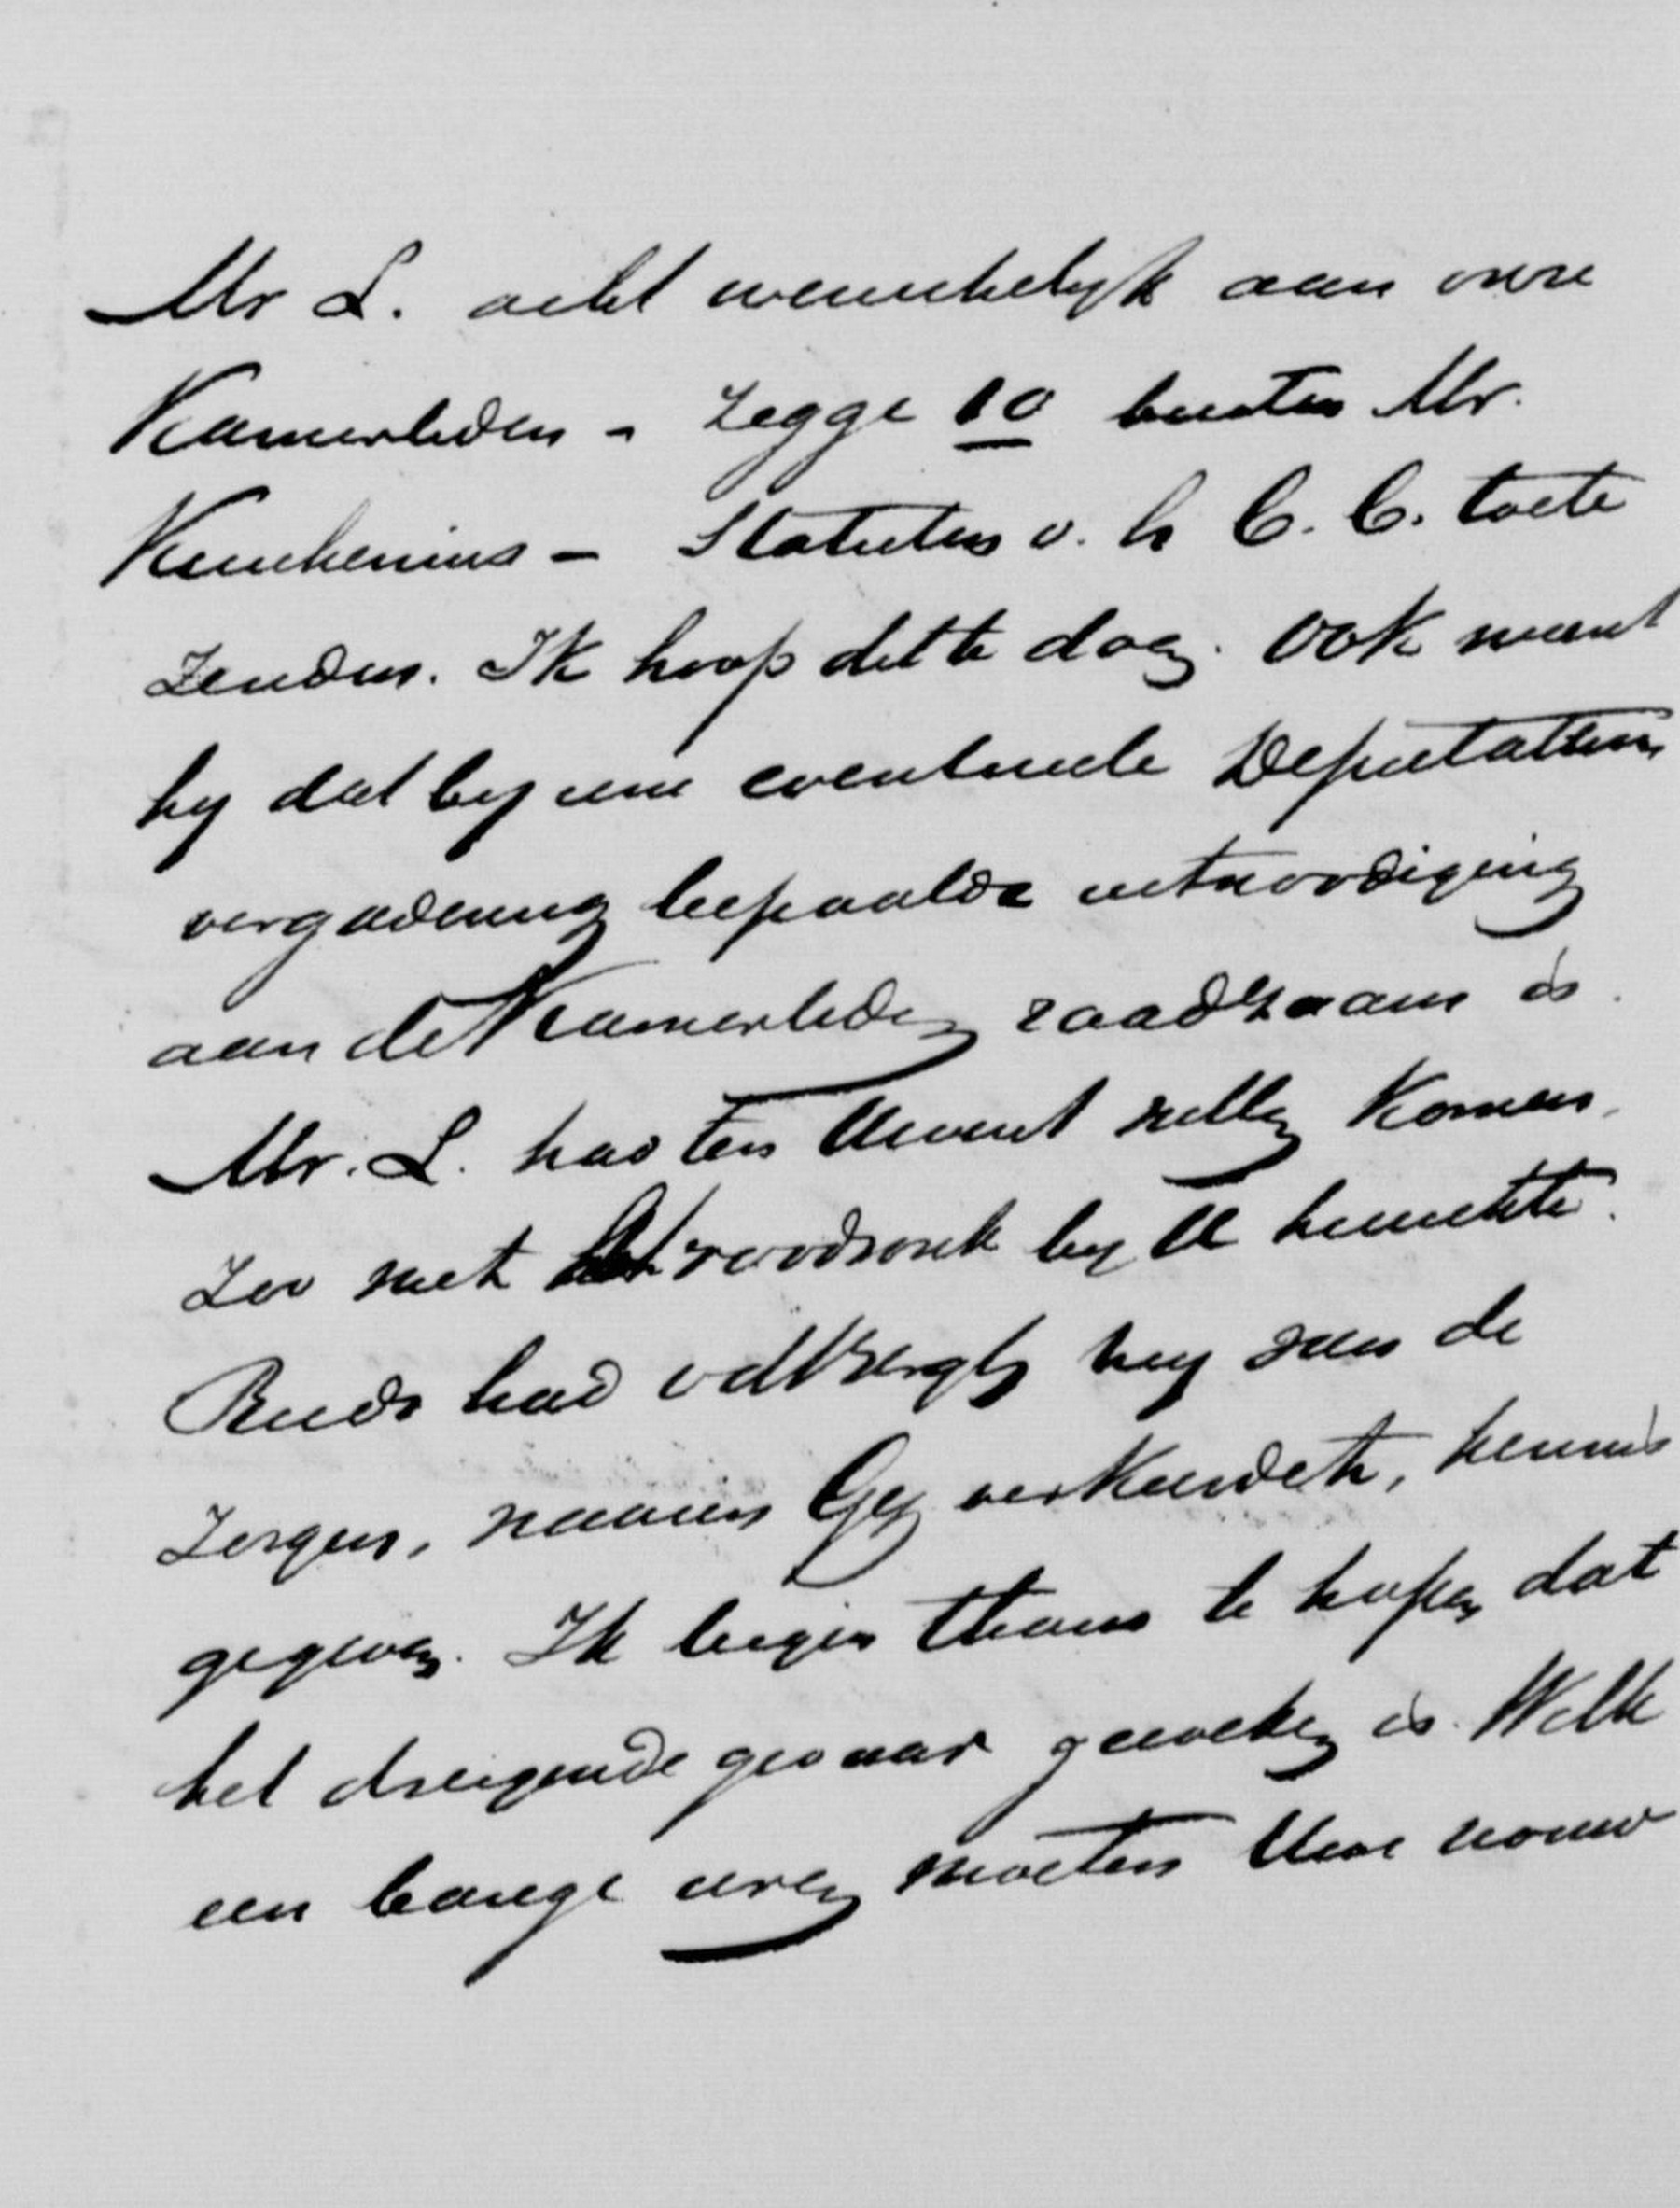 Mr L. acht wenschelyk aan onze
Kamerleden - Zegge 10 buiten Mr.
Keuchenius - Statuten v. h C. C. toete
zenden. Ik hoop dit te doen. Ook meent
hy dat by eene eventueele Deputaten
vergadering bepaalde uitnoodiging
aan de Kamerleden raadzaam is.
Mr. L. had ten Uwent zullen komen,
Zoo niet roodvonk by U heerschte.
Reeds had ik van de
zorgen, waarin Gy verkeerdet, kennis
gegeven. Ik begin thans te hopen dat
het dreigende gevaar geweken is. Welk
een bange uren moeten Uwe vrouw